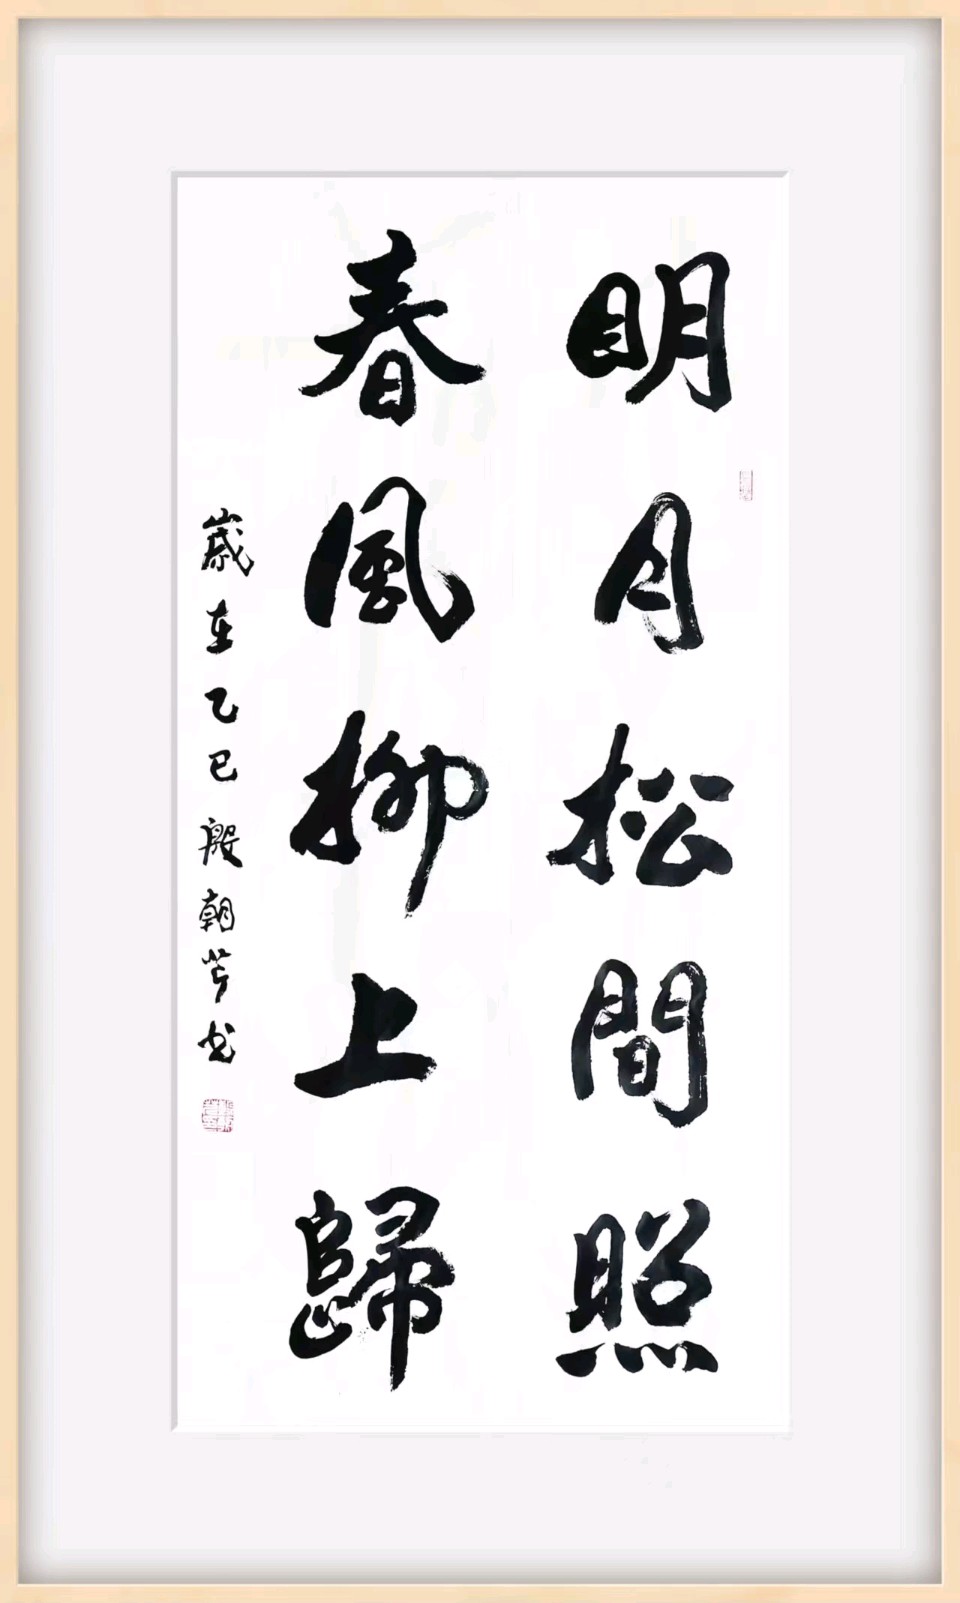 明月松間照
春風柳上歸
歲在乙巳殷朝芹书